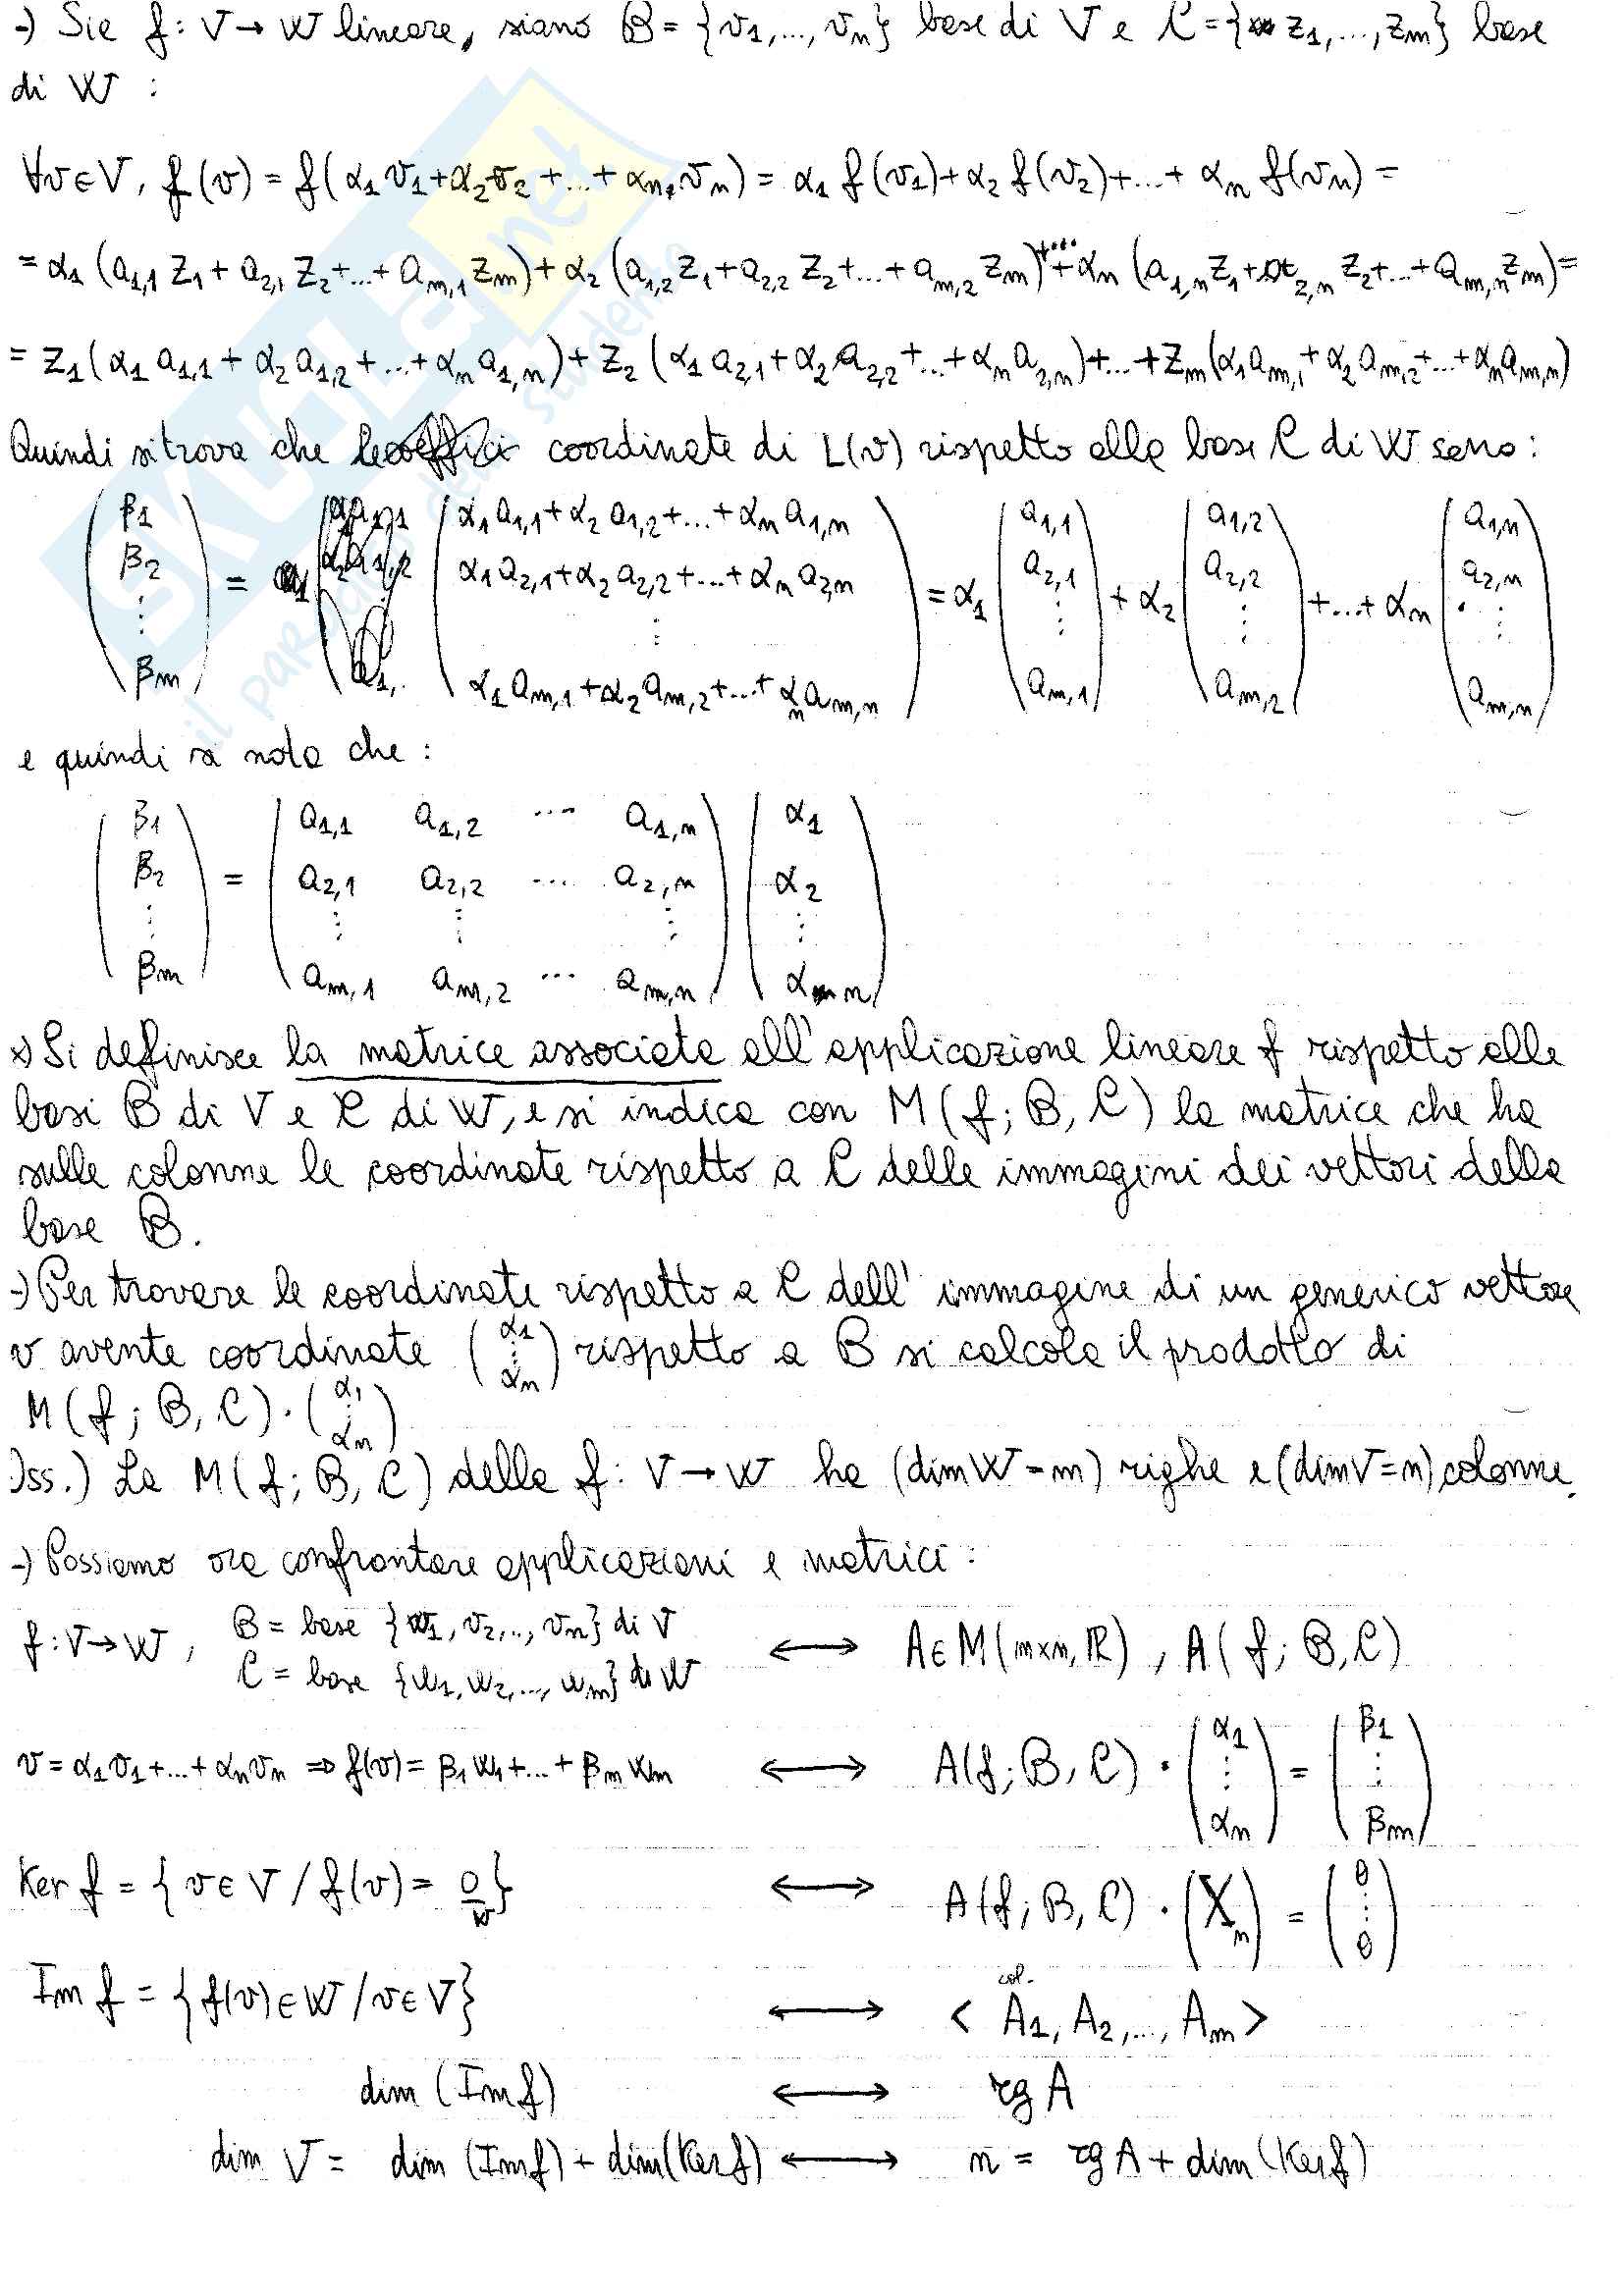 -) Sia f: V → W lineare, siano B = {v1,..., vn} base di V e C = {z1,..., zm} base
di W :
∀v∈V, f(v) = f(α1 v1+α2 v2 +...+ αn vn) = α1 f(v1)+α2 f(v2)+...+ αn f(vn) =
= α1 (a1,1 z1 + a2,1 z2 +...+ am,1 zm) + α2 (a1,2 z1 + a2,2 z2 +...+ am,2 zm)+...+αn (a1,n z1 + a2,n z2 +...+ am,n zm) =
= z1 (α1 a1,1 + α2 a1,2 +...+ αn a1,n) + z2 (α1 a2,1 + α2 a2,2 +...+ αn a2,n)+...+ zm (α1 am,1 + α2 am,2 +...+ αn am,n)
Quindi si trova che le coordinate di L(v) rispetto alla base C di W sono:
(β1 β2 ⋮ βm) = (α1 a1,1+α2 a1,2+...+αn a1,n α1 a2,1+α2 a2,2+...+αn a2,n ⋮ α1 am,1+α2 am,2+...+αn am,n) = α1 (a1,1 a2,1 ⋮ am,1) + α2 (a1,2 a2,2 ⋮ am,2) +...+ αn (a1,n a2,n ⋮ am,n)
e quindi si nota che :
(β1 β2 ⋮ βm) = (a1,1 a1,2 ... a1,n a2,1 a2,2 ... a2,n ⋮ ⋮ ⋮ am,1 am,2 ... am,n) (α1 α2 ⋮ αn)
x) Si definisce la matrice associata all'applicazione lineare f rispetto alle
basi B di V e C di W, e si indica con M(f; B, C) la matrice che ha
sulle colonne le coordinate rispetto a C delle immagini dei vettori della
base B.
-) Per trovare le coordinate rispetto a C dell' immagine di un generico vettore
v avente coordinate (α1 ⋮ αn) rispetto a B si calcola il prodotto di
M(f; B, C) · (α1 ⋮ αn)
Oss.) La M(f; B, C) della f: V → W ha (dim W = m) righe e (dim V = n) colonne.
-) Possiamo ora confrontare applicazioni e matrici :
f: V → W , B = base {v1, v2,.., vn} di V ↔ A ∈ M(m×n, ℝ) , A(f; B, C)
C = base {w1, w2,..., wm} di W
v = α1 v1 +...+ αn vn ⇒ f(v) = β1 w1 +...+ βm wm ↔ A(f; B, C) · (α1 ⋮ αn) = (β1 ⋮ βm)
Ker f = {v ∈ V / f(v) = 0w} ↔ A(f; B, C) · (Xn) = (0 ⋮ 0)
col.
Im f = {f(v) ∈ W / v ∈ V} ↔ < A1, A2,..., Am >
dim (Im f) ↔ rg A
dim V = dim (Im f) + dim(Ker f) ↔ n = rg A + dim (Ker f)
SKUOLA.net
il paradiso dello studente